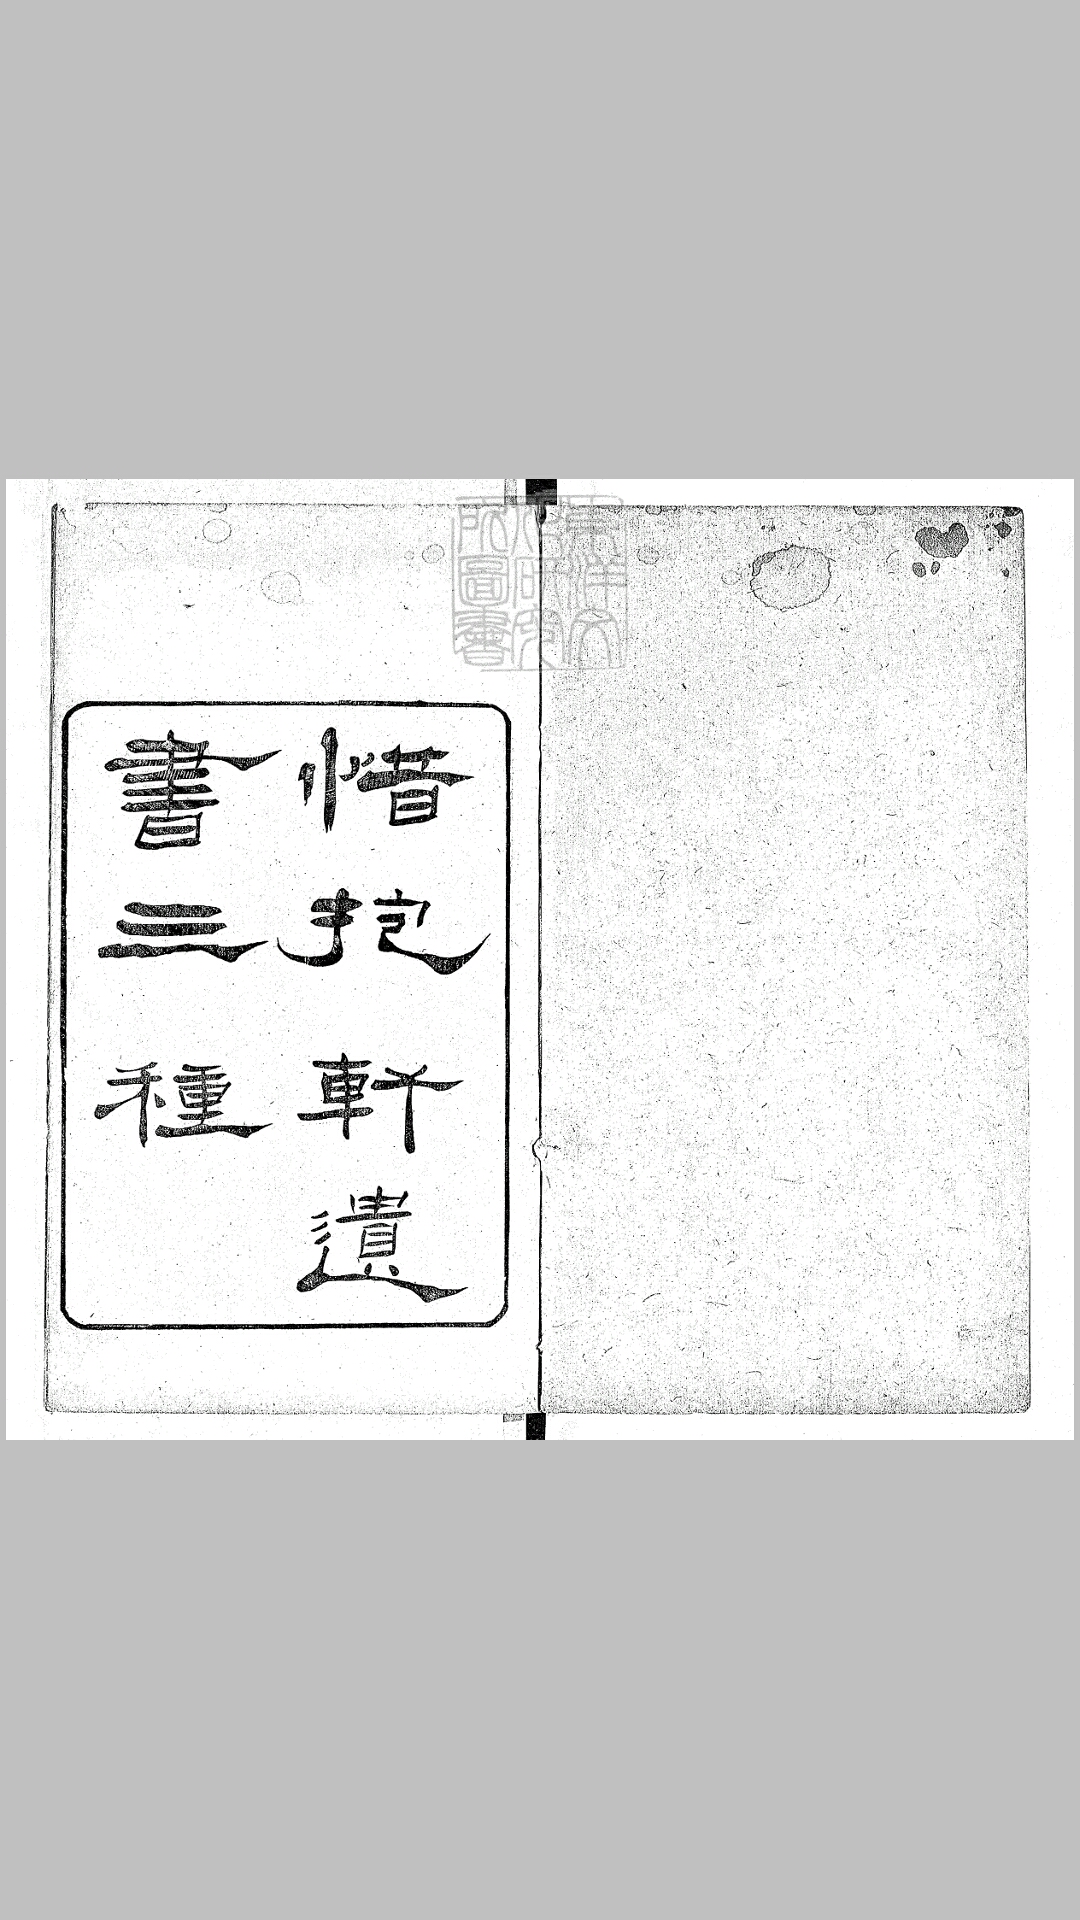 惜抱軒遺
書三種